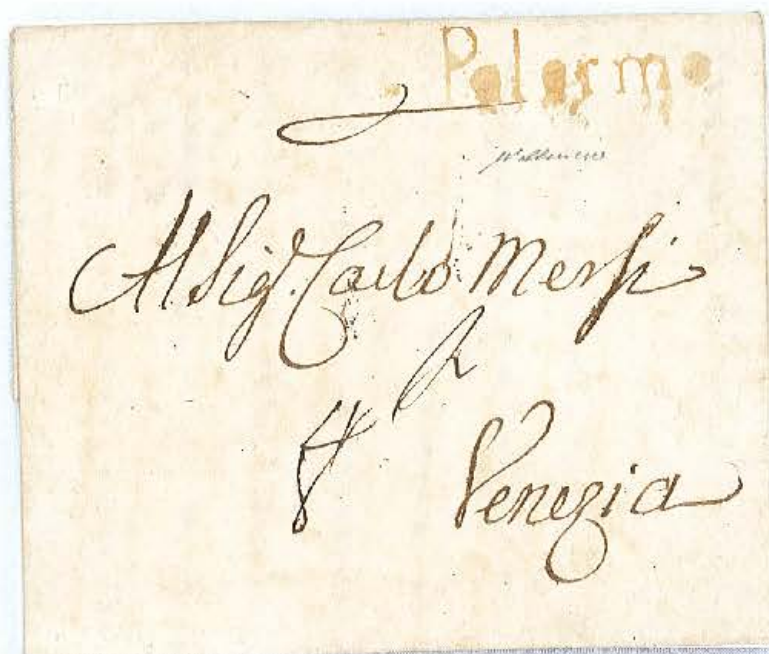 Palermo
Al Sig.r Carlo Mersi
Venezia